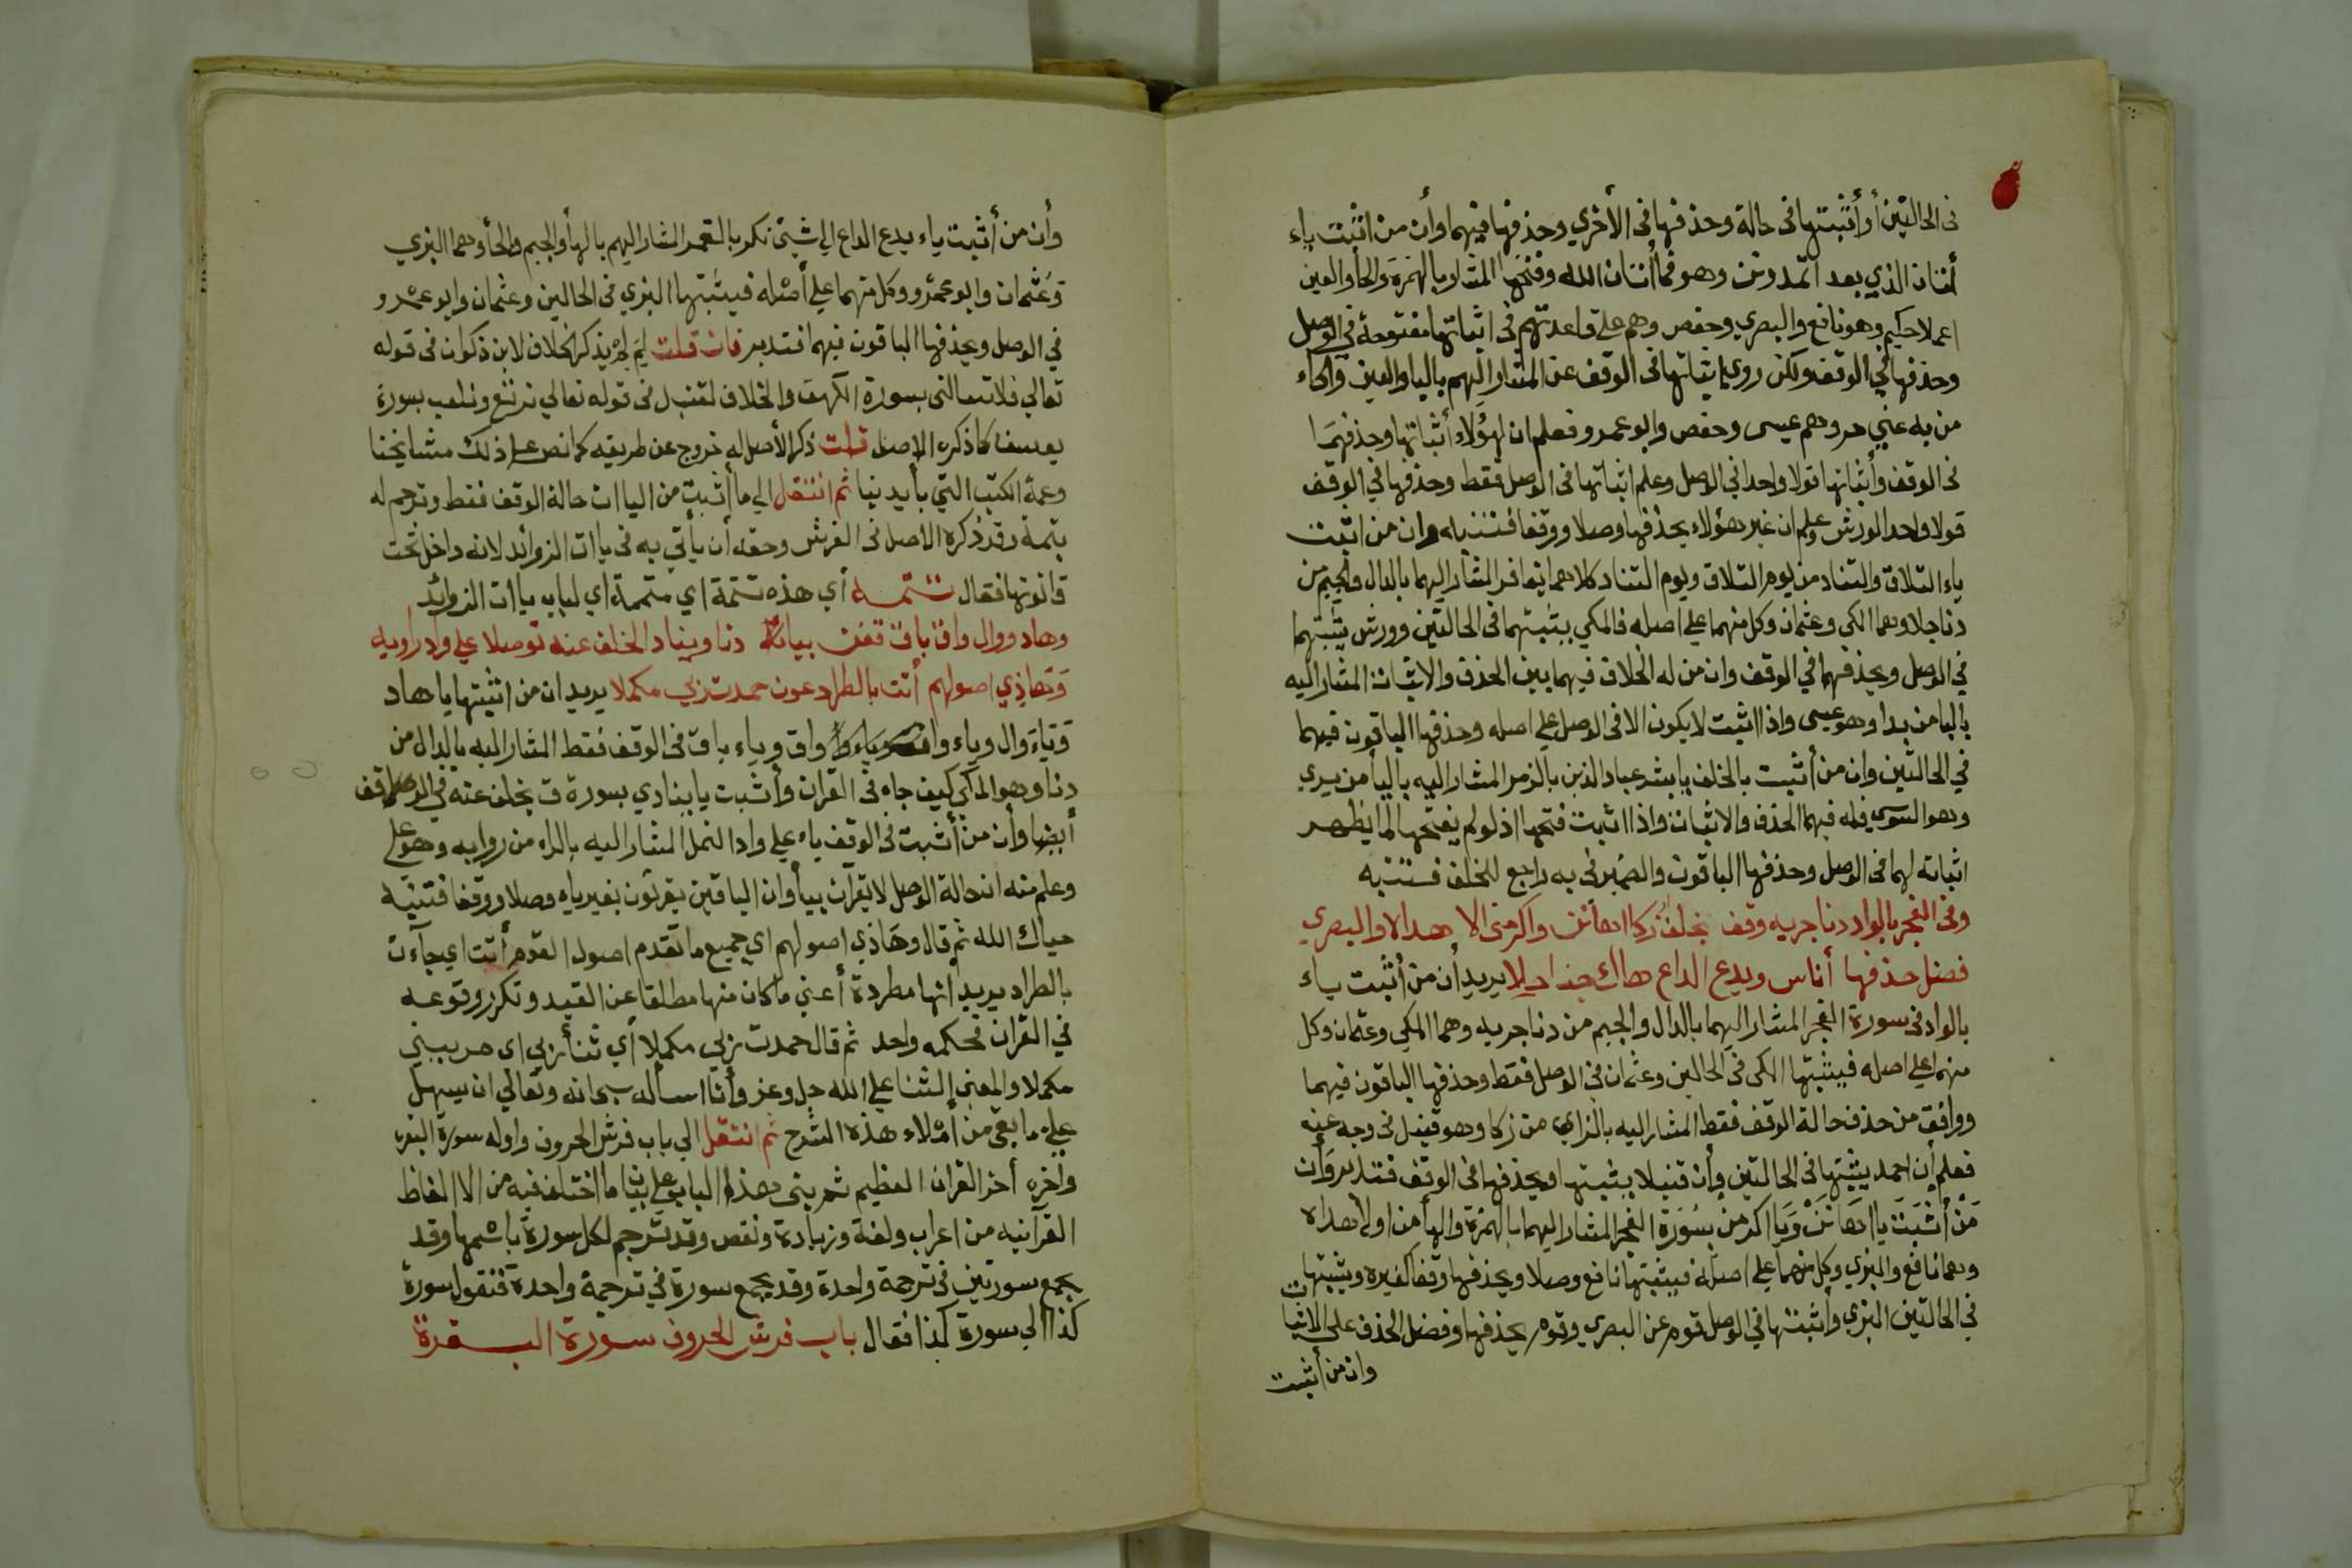 في الحالتين أو أثبتها في حالة وحذفها في الأخري وحذفها فيهما وأن من اثبت ياء
أتان الذي بعد اتمدونن وهو فما أتان الله وفتحها المشار بالهمزة والحا والعين
اعملا حكيم وهو نافع والبصري وحفص وهم علي قاعدتهم في اثباتها مفتوحة في الوصل
وحذفها في الوقف ولكن روي اثباتها في الوقف عن المشار اليهم باليا والعين والحاء
من به عني حر وهم عيسى وحفص وابو عمرو فعلم ان لهؤلاء أثباتها وحذفها
في الوقف وأثباتها قولا واحدا في الوصل وعلم اثباتها في الوصل فقط وحذفها في الوقف
قولا واحدا لورش وعلم ان غير هؤلاء يحذفها وصلا ووقفا فتنبه وان من اثبت
ياء التلاق والتناد من يوم التلاق ويوم التناد كلاهما بغافر المشار اليهما بالدال والجيم من
دنا جلا وهما المكي وعثمان وكل منهما علي اصله فالمكي يثبتهما في الحالتين وورش يثبتهما
في الوصل ويحذفهما في الوقف وان من له الخلاف فيهما بين الحذف والاثبات المشار اليه
بالبا من بدا وهو عيسى واذا اثبت لا يكون الا في الوصل علي اصله وحذفها الباقون فيهما
في الحالتين وان من أثبت بالخلف يا بشر عباد الذين بالزمر المشار اليه باليا من يري
وهو السوسي فله فيهما الحذف والاثبات واذا اثبت فتحها اذ لو لم يفتحها لما يظهر
اثباته لهما في الوصل وحذفها الباقون والضمير في به راجع للخلف فتنبه
وفي الفجر بالواد دنا جريه وقف بخلف زكا اهانن واكرمني الا هدا لا والبصري
فضل حذفها أناس ويدع الداع هاك جنا حلا يريد أن من أثبت ياء
بالواد في سورة الفجر المشار اليهما بالدال والجيم من دنا جريه وهما المكي وعثمان وكل
منهما علي اصله فيثبتها المكي في الحالين وعثمان في الوصل فقط وحذفها الباقون فيهما
ووافق من حذف حالة الوقف فقط المشار اليه بالزاي من زكا وهو قنبل في وجه عنه
فعلم أن احمد يثبتها في الحالتين وأن قنبلا يثبتها ويحذفها في الوقف فتدبر وأن
من أثبت يا اهانن ويا اكرمن بسورة الفجر المشار اليهما بالهمزة والها من اولا هداه
وهما نافع والبزي وكل منهما علي اصله فيثبتها نافع وصلا ويحذفها وقفا كغيره ويثبتها
في الحالتين البزي وأثبتها في الوصل قوم عن البصري وقوم يحذفها وفضل الحذف علي الاثبات
وان من أثبت
وأن من أثبت ياء يدع الداع الي شيئ نكر بالقمر المشار اليهم بالها والجيم والحا وهما البزي
وعثمان وابو عمرو وكل منهما علي أصله فيثبتها البزي في الحالين وعثمان وابو عمرو
في الوصل ويحذفها الباقون فيهما فتدبر فان قلت لم لم يذكر الخلاف لابن ذكوان في قوله
تعالي فلا تسالني بسورة الكهف والخلاف لقنبل في قوله تعالي نرتع ونلعب بسورة
يوسف كما ذكره الاصل قلت ذكر الأصل له خروج عن طريقه كما نص علي ذلك مشايخنا
وعمة الكتب التي بأيدينا ثم انتقل الي ما أثبت من الياات حالة الوقف فقط وترجم له
بتمة وقد ذكره الاصل في الفرش وحقه أن يأتي به في ياات الزوائد لانه داخل تحت
قانونها فقال تتمة أي هذه تتمة اي متممة اي لباب ياات الزوائد
وهاد ووال واق باق قفن بيائه دنا وينادِ الخلف عنه توصلا علي واد راويه
وهاذي اصولهم أتت بالطراد عون حمدت ربي مكملا يريد ان من اثبتها يا هاد
وياء وال وياء واق وياء باق في الوقف فقط المشار اليه بالدال من
دنا وهو المكي كيف جاء في القران وأثبت يا ينادي بسورة ق بخلف عنه في الوقف
أيضا وأن من أثبت في الوقف ياء علي واد النمل المشار اليه بالراء من روايه وهو علي
وعلم منه ان حالة الوصل لا يقرآن بيا وان الباقين يقرئون بغير ياء وصلا ووقفا فتنبه
حياك الله ثم قال وهاذي اصولهم اي جميع ما تقدم اصول القوم أتت اي جآءت
بالطراد يريد أنها مطردة أعني ما كان منها مطلقا عن القيد وتكرر وقوعه
في القران فحكمه واحد ثم قال حمدت ربي مكملا أي ثنأ ربي اي مربيني
مكملا والمعني الثنا علي الله جل وعز وأنا اسأله سبحانه وتعالي ان يسهل
علي ما بقي من أملاء هذه الشرح ثم انتقل الي باب فرش الحروف واوله سورة البقرة
واخره أخر القران العظيم ثم بني هذا الباب علي بيان ما اختلف فيه من الالفاظ
القرآنيه من اعراب ولغة وزيادة ونقص وقد ترجم لكل سورة باسمها وقد
يجمع سورتين في ترجمة واحدة وقد يجمع سورة في ترجمة واحدة فنقول سورة
كذا الي سورة كذا فقال باب فرش الحروف سورة البقرة